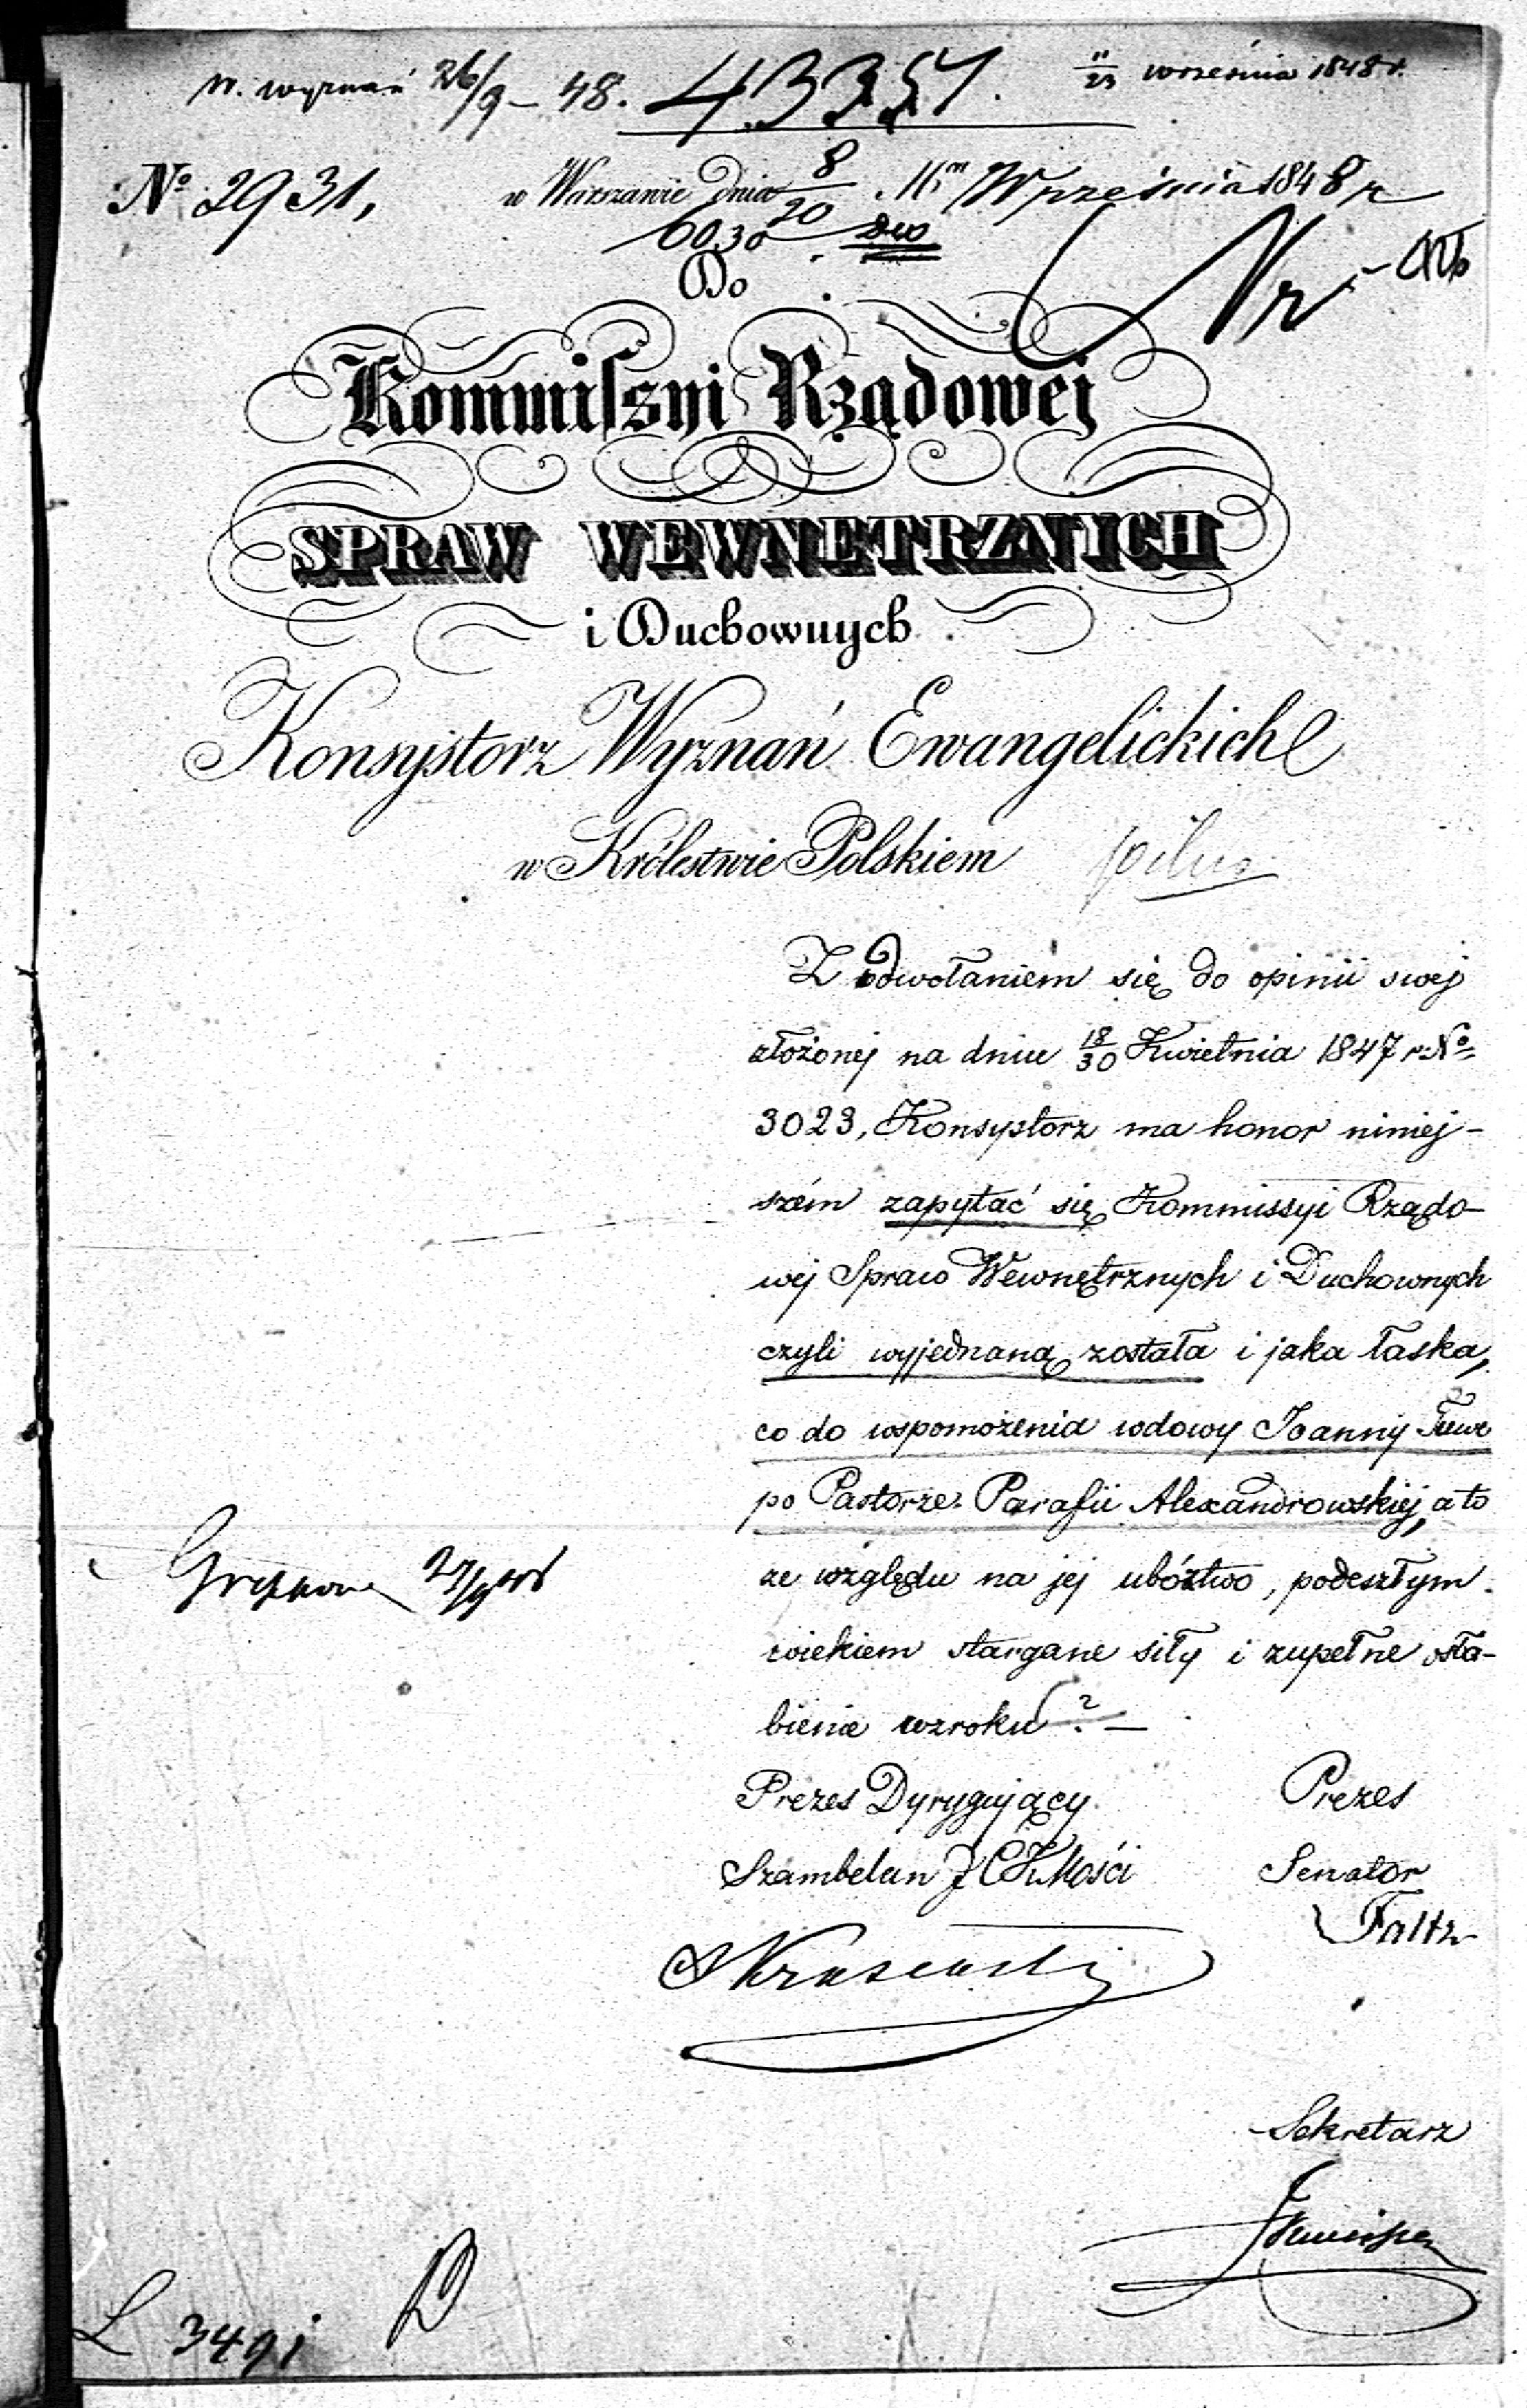 W. wyznań 26/9 – 48. 43351. 11/23 września 1848 r.
№ 2931, w Warszawie Dnia 8/20 Września 1848 r
6030
Do
Kommiſsyi Rządowej
SPRAW WEWNĘTRZNYCH
i Duchownych
Konsystorz Wyznań Ewangelickich
w Królestwie Polskiem pilno
Z odwołaniem się do opinii swej
złożonej na dniu 18/30 Kwietnia 1847 r №
3023, Konsystorz ma honor niniej-
szém zapytać się Kommissyi Rządo-
wej Spraw Wewnętrznych i Duchownych
czyli wyjednaną została i jaka łaska,
co do wspomożenia wdowy Joanny
po Pastorze Parafii Alexandrowskiej, a to
ze względu na jej ubóztwo, podeszłym
wiekiem stargane siły i zupełne osła-
bienie wzroku? —
27/9
Prezes Dyrygujący Prezes
Szambelan J C K Mości Senator
Faltz
Sekretarz
L 3491 D